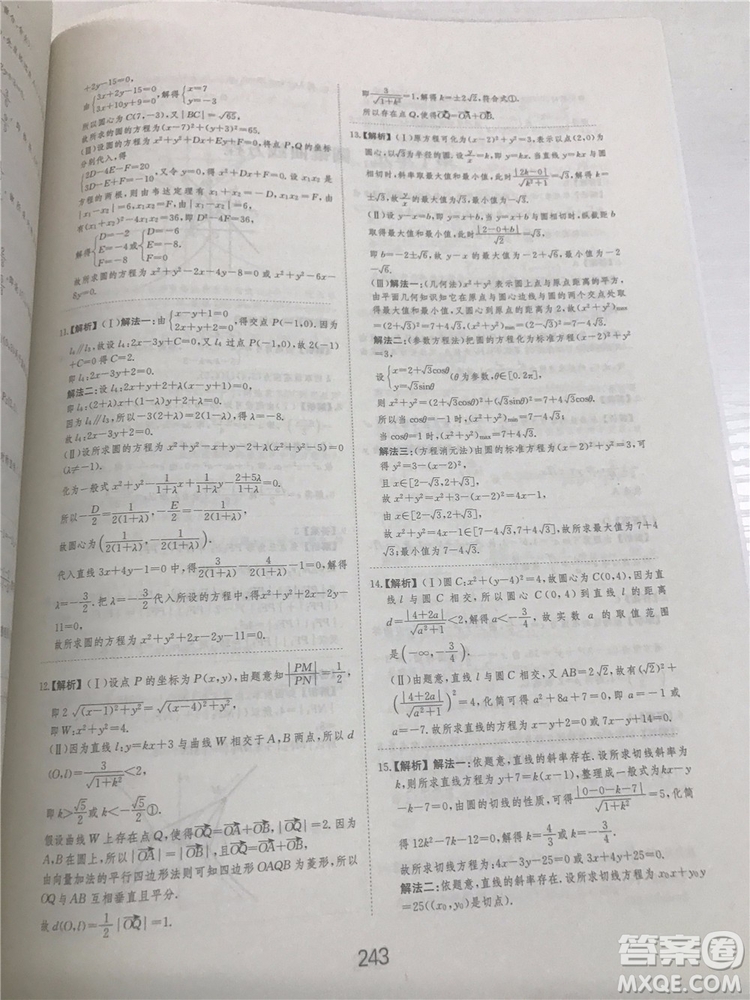 即{x+2y-15=0, 3x+10y+9=0, 解得{x=7, y=-3
所以 C(7,-3),又|BC|=√65,
故所求的圆的方程为(x-7)²+(y+3)²=65.
(Ⅲ)设圆的方程为 x²+y²+Dx+Ey+F=0,将 P,Q 的坐标
分别代入,得
{2D-4E-F=20, 3D-E+F=-10 又令 y=0,得 x²+Dx+F=0.
由已知,|x₁-x₂|=6,故(x₁+x₂)²-4x₁x₂=36,即 D²-4F=36,
解得{D=-2, E=-4, F=-8 或{D=-6, E=-8, F=0.
故所求圆的方程为 x²+y²-2x-4y-8=0 或 x²+y²-6x-
8y=0.
11.【解析】(Ⅰ)解法一:由{x-y+1=0, 2x+y+2=0,得交点 P(-1,0).因为
l₄∥l₃,故设 l₄:2x-3y+C=0,又 l₄过点 P(-1,0).代入
得 C=2.
即 l₄:2x-3y+2=0.
解法二:设 l₄:2x+y+2+λ(x-y+1)=0,
即 l₄:(2+λ)x+(1-λ)y+2+λ=0.
因为 l₄∥l₃,所以-3(2+λ)=2(1-λ),解得 λ=-8.
即 l₄:2x-3y+2=0.
(Ⅱ)设所求圆的方程为 x²+y²-x+y-2+λ(x²+y²-5)=0(λ
≠-1).
化为一般式 x²+y²-x/(1+λ)+y/(1+λ)-(2+5λ)/(1+λ)=0,
所以-D/2=1/(2(1+λ)),-E/2=-1/(2(1+λ)),
故圆心为(1/(2(1+λ)),-1/(2(1+λ))),
代入直线 3x+4y-1=0 中,得
λ=-3/2.将 λ=-3/2 代入所设的方程得 x²+y²+2x-2y-
11=0.
故所求圆的方程为 x²+y²+2x-2y-11=0.
12.【解析】(Ⅰ)设点 P 的坐标为 P(x,y),由题意知|PM|/|PN|=1/2,
即 2√((x-1)²+y²)=√((x-4)²+y²),
即 W:x²+y²=4.
(Ⅱ)因为直线 l:y=kx+3 与曲线 W 交于 A,B 两点,所以 d
(O,l)=3/√(1+k²)<2,
即 k>√5/2 或 k<-√5/2①.
假设曲线 W 上存在点 Q,使得OQ=OA+OB,因为
A,B 在圆上,所以|OA|=|OB|,且OQ=OA+OB,
由向量加法的平行四边形法则可知四边形 OAQB 为菱形,所以
OQ 与 AB 互相垂直且平分.
故 d(O,l)=1/2|OQ|=1.
即3/√(1+k²)=1,解得 k=±2√2,符合式①.
所以存在点 Q,使得OQ=OA+OB.
13.【解析】(Ⅰ)原方程可化为(x-2)²+y²=3,表示以点(2,0)为
时,斜率取最大值和最小值,此时|2k-0|/√(k²+1)=√3,
解得 k=±√3.
(Ⅱ)设 y-x=b,即 y=x+b,当 y=x+b 与圆相切时,纵截距
b 取得最大值和最小值,此时|2-0+b|/√2=√3,
即 b=-2±√6.故 y-x 的最大值为-2+√6,最小值为-2-
√6.
(Ⅲ)解法一:(几何法)x²+y²表示圆上点与原点距离的平方,
由平面几何知识知它在原点与圆心连线与圆的两个交点处
解法二:(参数方程法)把圆的方程化为标准方程(x-2)²+y²
=3,
设{x=2+√3cosθ, y=√3sinθ (θ为参数,θ∈[0,2π],
则 x²+y²=(2+√3cosθ)²+(√3sinθ)²=7+4√3cosθ.
所以当 cosθ=-1 时,(x²+y²)min=7-4√3,
当 cosθ=1 时,(x²+y²)max=7+4√3.
解法三:(方程消元法)由圆的标准方程为(x-2)²+y²=3,可
得 y²=3-(x-2)²,
且 x∈[2-√3,2+√3].
故 x²+y²=x²+3-(x-2)²=4x-1,
由 x∈[2-√3,2+√3],得 4x-1∈[7-4√3,7+4√3],
即 x²+y²∈[7-4√3,7+4√3].所以 x²+y²的最大值为 7+4
√3;最小值为 7-4√3.
14.【解析】(Ⅰ)圆 C:x²+(y-4)²=4,故圆心为 C(0,4),因为直
线 l 与圆 C 相交,所以圆心 C(0,4)到直线 l 的距离
d=|4+2a|/√(a²+1)<2,解得 a<-3/4,故实数 a 的取值范围
是(-∞,-3/4).
(Ⅱ)由题意,直线 l 与圆 C 相交,又 AB=2√2,故(√2)²+
(|4+2a|/√(a²+1))²=4,化简可得 a²+8a+7=0,解得 a=-1 或
a=-7.故所求直线的方程为 x-y+2=0 或 7x-y+14=0.
15.【解析】解法一:依题意,直线的斜率存在.设所求切线斜率为
k,则所求直线方程为 y+7=k(x-1),整理成一般式为 kx-y-
k-7=0.由圆的切线的性质,可得|0-0-k-7|/√(1+k²)=5,化简
得 12k²-7k-12=0,解得 k=4/3 或 k=-3/4.
故所求切线方程为:4x-3y-25=0 或 3x+4y+25=0.
解法二:依题意,直线的斜率存在.设所求切线的方程为 x₀x+y₀y
=25((x₀,y₀)是切点).
243
答案圈
MXQE.COM